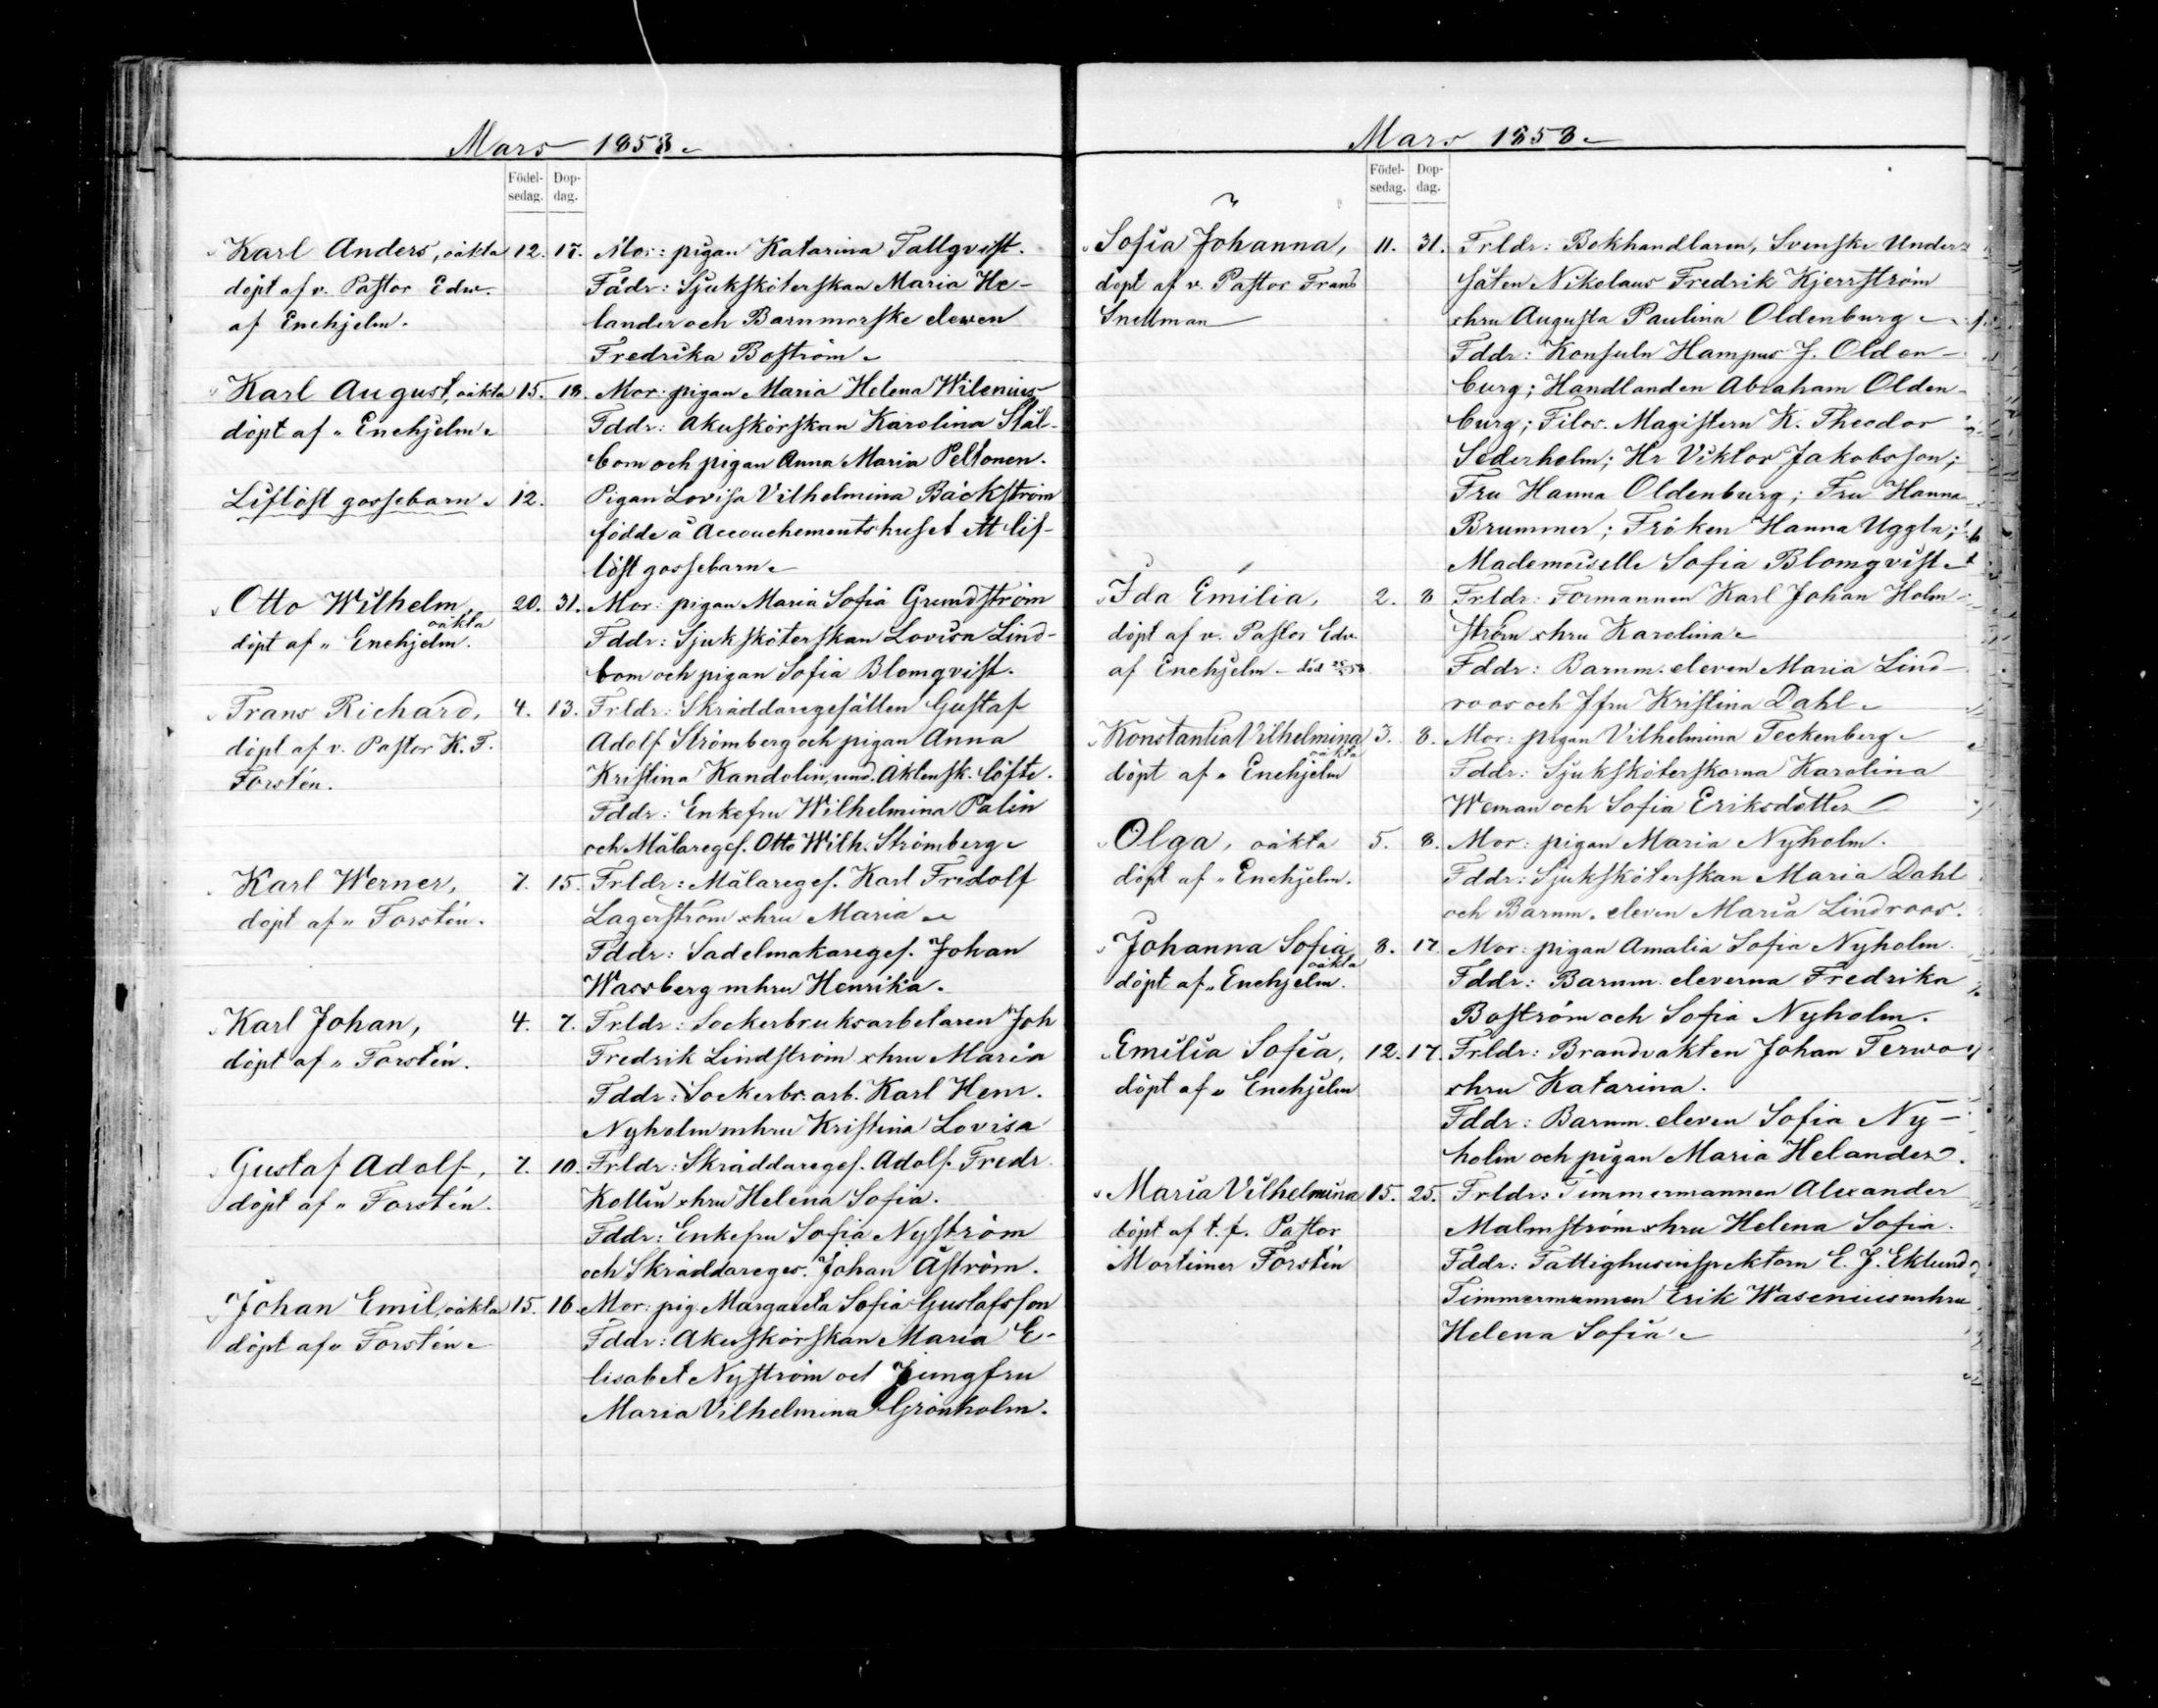 Mars 1858
Födel-
sedag.
Dop-
dag.
Karl Anders, oäkta 12. 17. Mor: pigan Katarina Tallqvist.
döpt af v. Pastor Edw. Fadr: Sjuksköterskan Maria He-
af Enehjelm. lander och Barnmorske eleven
Fredrika Boström
Karl August, oäkta 15. 18. Mor: pigan Maria Helena Wilenius
döpt af " Enehjelm Fddr: Akuskörskan Karolina Stål-
bom och pigan Anna Maria Peltonen.
Liflöst gossebarn 12. Pigan Lovisa Vilhelmina Bäckström
födde å Accouchementshuset ett lif-
löst gossebarn
Otto Wilhelm, 20. 31. Mor: pigan Maria Sofia Grundström
oäkta
döpt af " Enehjelm. Fddr: Sjuksköterskan Lovisa Lind-
bom och pigan Sofia Blomqvist.
Frans Richard, 4. 13. Frldr: Skräddaregesällen Gustaf
döpt af v. Pastor K. F. Adolf Strömberg och pigan Anna
Forstén. Kristina Kandolin, und. Äktensk. löfte.
Fddr: Enkefru Wilhelmina Palin
och Målareges. Otto Wilh. Strömberg
Karl Werner, 7. 15. Frldr: Målareges. Karl Fridolf
döpt af " Forstén. Lagerström o hru Maria
Fddr: Sadelmakareges. Johan
Wassberg m hru Henrika.
Karl Johan, 4. 7. Frldr: Sockerbruksarbetaren Joh
döpt af " Forstén. Fredrik Lindström o hru Maria
Fddr: Sockerbr. arb. Karl Henr.
Nyholm m hru Kristina Lovisa
Gustaf Adolf, 7. 10. Frldr: Skräddareges. Adolf Fredr.
döpt af " Forstén. Kollin o hru Helena Sofia.
Fddr: Enkefru Sofia Nyström
och Skräddareges. Johan Åström.
Johan Emil, oäkta 15. 16. Mor: pig. Margareta Sofia Gustafsson
döpt af " Forstén Fddr: Akuskörskan Maria E-
lisabet Nyström och Jungfru
Maria Vilhelmina Grönholm.
Mars 1858
Födel-
sedag.
Dop-
dag.
Sofia Johanna, 11. 31. Frldr: Bokhandlaren, Svenske Under-
döpt af v. Pastor Frans såten Nikolaus Fredrik Kjerrström
Snellman o hru Augusta Paulina Oldenburg
Fddr: Konsuln Hampus J. Olden-
burg; Handlanden Abraham Olden-
burg; Filos. Magistern K. Theodor
Sederholm; Hr Viktor Jakobsson;
Fru Hanna Oldenburg; Fru Hanna
Brummer; Fröken Hanna Uggla;
Mademoiselle Sofia Blomqvist
Ida Emilia, 2. 8 Frldr: Formannen Karl Johan Holm-
döpt af v. Pastor Edv. ström o hru Karolina
af Enehjelm - död Fddr: Barnm. eleven Maria Lind-
roos och Jfru Kristina Dahl
Konstantia Vilhelmina 3. 8. Mor: pigan Vilhelmina Teckenberg
oäkta
döpt af " Enehjelm Fddr: Sjuksköterskorna Karolina
Weman och Sofia Eriksdotter
Olga, oäkta 5. 8. Mor: pigan Maria Nyholm.
döpt af " Enehjelm. Fddr: Sjuksköterskan Maria Dahl
och Barnm. eleven Maria Lindroos.
Johanna Sofia 8. 17. Mor: pigan Amalia Sofia Nyholm.
oäkta
döpt af " Enehjelm. Fddr: Barnm. eleverna Fredrika
Boström och Sofia Nyholm.
Emilia Sofia, 12. 17. Frldr: Brandvakten Johan Terwo
döpt af " Enehjelm o hru Katarina.
Fddr: Barnm. eleven Sofia Ny-
holm och pigan Maria Helander.
Maria Vilhelmina 15. 25. Frldr: Timmermannen Alexander
döpt af t. f. Pastor Malmström o hru Helena Sofia.
Mortimer Forstén Fddr: Fattighusinspektorn E. J. Eklund
Timmermannen Erik Wasenius m hru
Helena Sofia